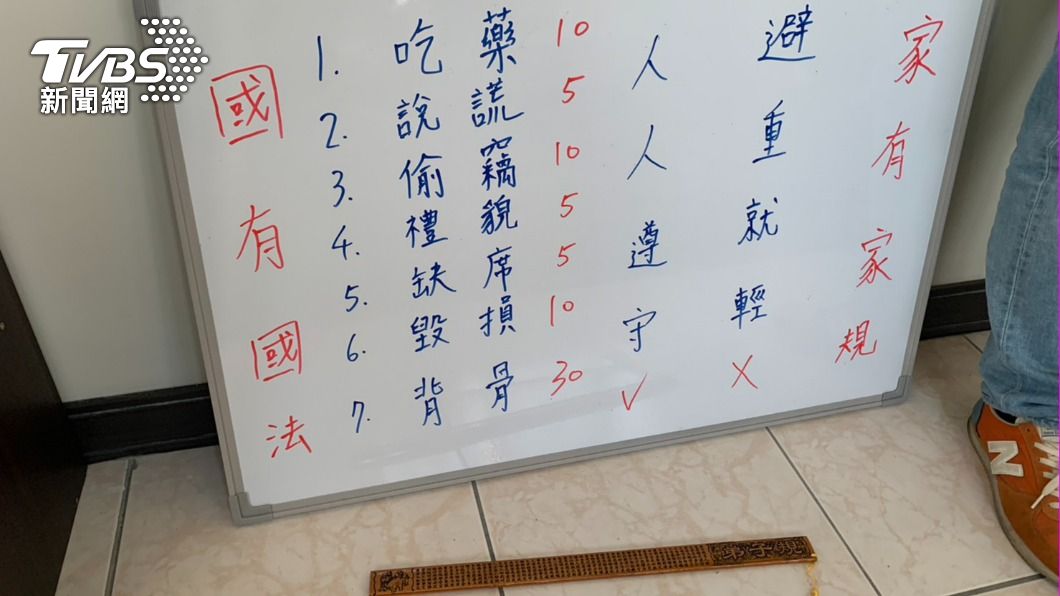 TVBS
新聞網
國有國法
1. 吃藥 10
2. 說謊 5
3. 偷竊 10
4. 禮貌 5
5. 缺席 5
6. 毀損 10
7. 背骨 30
人人遵守 ✓
避重就輕 X
家有家規
弟子規
N